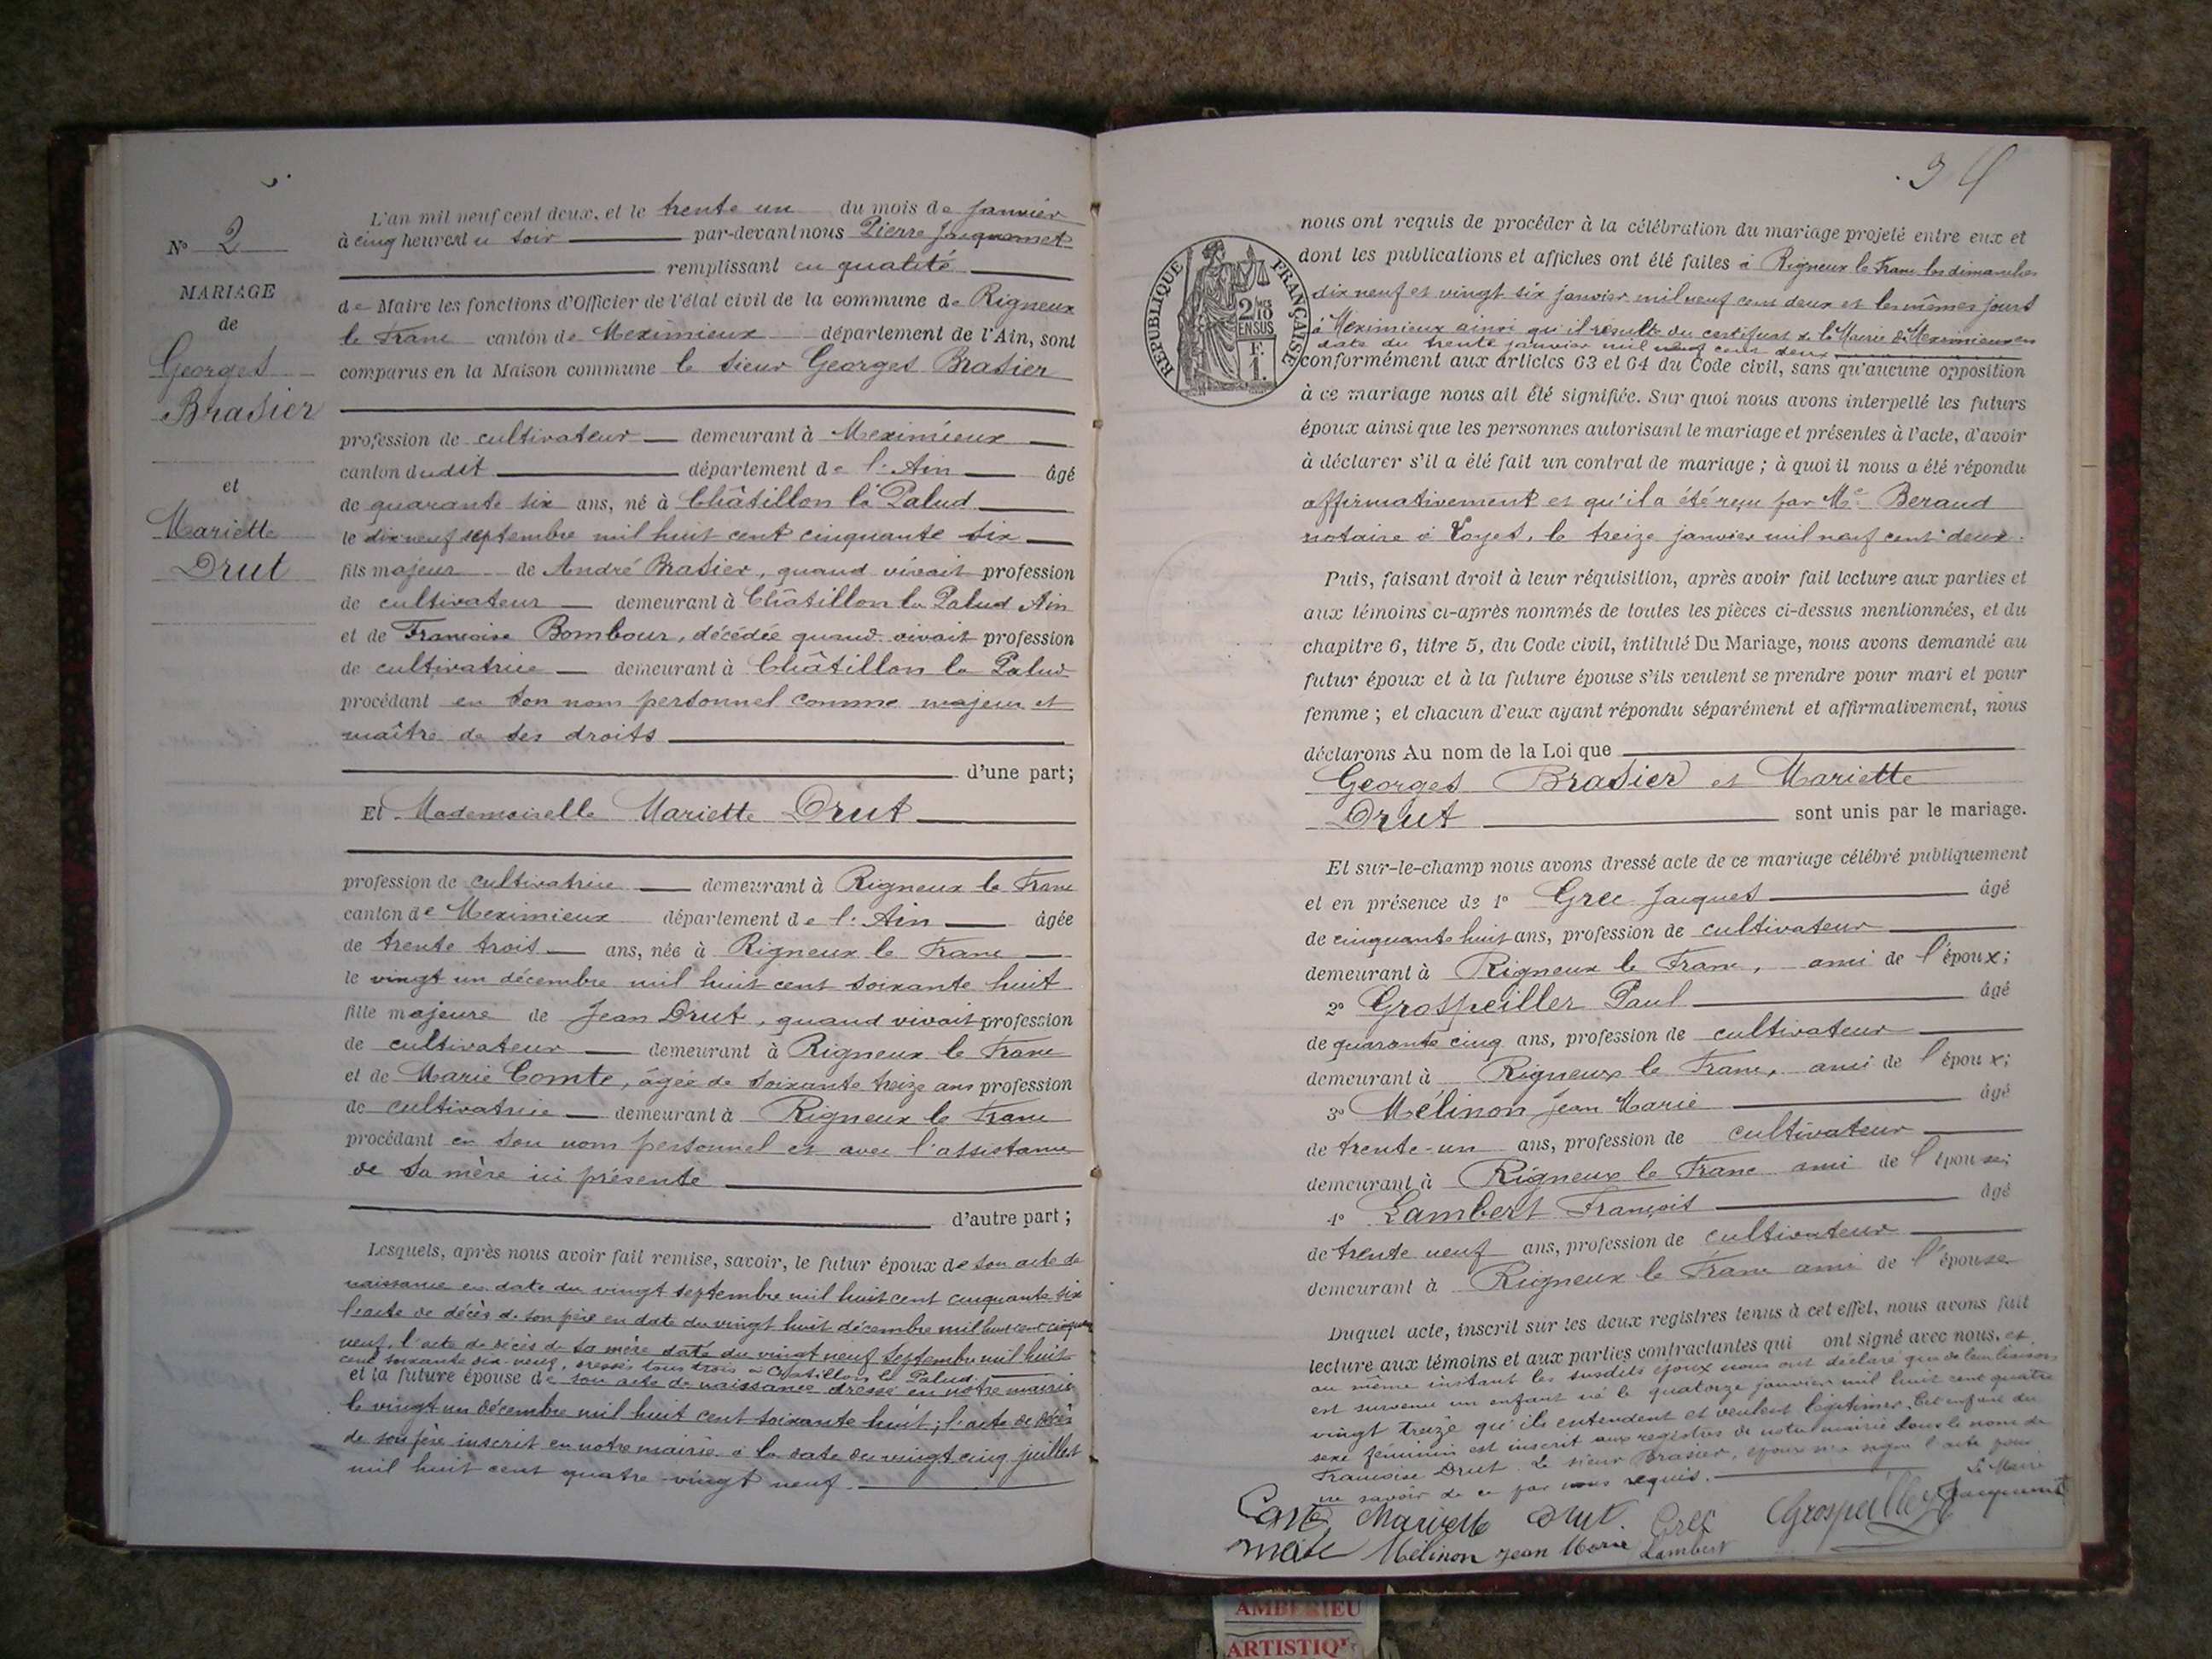 N° 2
MARIAGE
de
Georges
Brasier
et
Mariette
Drut
L'an mil neuf cent deux, et le trente un du mois de janvier
à cinq heures du soir par-devant nous Pierre Jacquemet
remplissant en qualité
de Maire les fonctions d'Officier de l'état civil de la commune de Rigneux
le Franc canton de Meximieux département de l'Ain, sont
comparus en la Maison commune le sieur Georges Brasier
profession de cultivateur demeurant à Meximieux
canton dudit département de l'Ain âgé
de quarante six ans, né à Châtillon la Palud
le dix neuf septembre mil huit cent cinquante six
fils majeur de André Brasier, quand vivait profession
de cultivateur demeurant à Châtillon la Palud Ain
et de Françoise Bombour, décédée quand vivait profession
de cultivatrice demeurant à Châtillon la Palud
procédant en son nom personnel comme majeur et
maître de ses droits
d'une part;
Et Mademoiselle Mariette Drut
profession de cultivatrice demeurant à Rigneux le Franc
canton de Meximieux département de l'Ain âgée
de trente trois ans, née à Rigneux le Franc
le vingt un décembre mil huit cent soixante huit
fille majeure de Jean Drut, quand vivait profession
de cultivateur demeurant à Rigneux le Franc
et de Marie Comte, âgée de soixante treize ans profession
de cultivatrice demeurant à Rigneux le Franc
procédant en son nom personnel et avec l'assistance
de sa mère ici présente
d'autre part;
Lesquels, après nous avoir fait remise, savoir, le futur époux de son acte de
naissance en date du vingt septembre mil huit cent cinquante six
l'acte de décès de son père en date du vingt huit décembre mil huit cent cinquante
neuf, l'acte de décès de sa mère daté du vingt neuf septembre mil huit
cent soixante dix-neuf, dressés tous trois à Chatillon la Palud
et la future épouse de son acte de naissance dressé en notre mairie
le vingt un décembre mil huit cent soixante huit; l'acte de décès
de son père inscrit en notre mairie à la date du vingt cinq juillet
mil huit cent quatre-vingt neuf.
RÉPUBLIQUE FRANÇAISE
2/10
EN SUS
F.
1.
nous ont requis de procéder à la célébration du mariage projeté entre eux et
dont les publications et affiches ont été faites à Rigneux le Franc les dimanches
dix neuf et vingt six janvier mil neuf cent deux et les mêmes jours
à Meximieux ainsi qu'il résulte du certificat de la Mairie de Meximieux en
date du trente janvier mil neuf cent deux
conformément aux articles 63 et 64 du Code civil, sans qu'aucune opposition
à ce mariage nous ait été signifiée. Sur quoi nous avons interpellé les futurs
époux ainsi que les personnes autorisant le mariage et présentes à l'acte, d'avoir
à déclarer s'il a été fait un contrat de mariage; à quoi il nous a été répondu
affirmativement et qu'il a été reçu par Me Beraud
notaire à Loyes, le treize janvier mil neuf cent deux.
Puis, faisant droit à leur réquisition, après avoir fait lecture aux parties et
aux témoins ci-après nommés de toutes les pièces ci-dessus mentionnées, et du
chapitre 6, titre 5, du Code civil, intitulé Du Mariage, nous avons demandé au
futur époux et à la future épouse s'ils veulent se prendre pour mari et pour
femme; et chacun d'eux ayant répondu séparément et affirmativement, nous
déclarons Au nom de la Loi que
Georges Brasier et Mariette
Drut sont unis par le mariage.
Et sur-le-champ nous avons dressé acte de ce mariage célébré publiquement
et en présence de 1° Grec Jacques âgé
de cinquante huit ans, profession de cultivateur
demeurant à Rigneux le Franc, ami de l'époux;
2° Grospeiller Paul âgé
de quarante cinq ans, profession de cultivateur
demeurant à Rigneux le Franc, ami de l'époux;
3° Mélinon Jean Marie âgé
de trente-un ans, profession de cultivateur
demeurant à Rigneux le Franc ami de l'épouse;
4° Lambert François âgé
de trente neuf ans, profession de cultivateur
demeurant à Rigneux le Franc ami de l'épouse
Duquel acte, inscrit sur les deux registres tenus à cet effet, nous avons fait
lecture aux témoins et aux parties contractantes qui ont signé avec nous, et
au même instant les susdits époux nous ont déclaré que de leur liaison
est survenu un enfant né le quatorze janvier mil huit cent quatre
vingt treize qu'ils entendent et veulent légitimer. Cet enfant du
sexe féminin est inscrit aux registres de notre mairie sous le nom de
Françoise Drut. Le sieur Brasier, époux n'a signé l'acte pour
ne savoir de ce par nous requis.
Le Maire
Mariette Drut. Grec Grospeiller Jacquemet
Mélinon Jean Marie Lambert
AMBERIEU
ARTISTIQUE